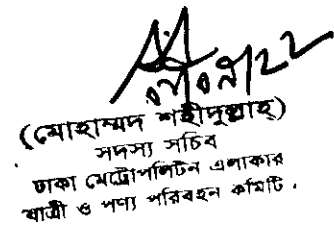 (মোহাম্মদ শহীদুল্লাহ)
সদস্য সচিব
ঢাকা মেট্রোপলিটন এলাকার
যাত্রী ও পণ্য পরিবহন কমিটি.